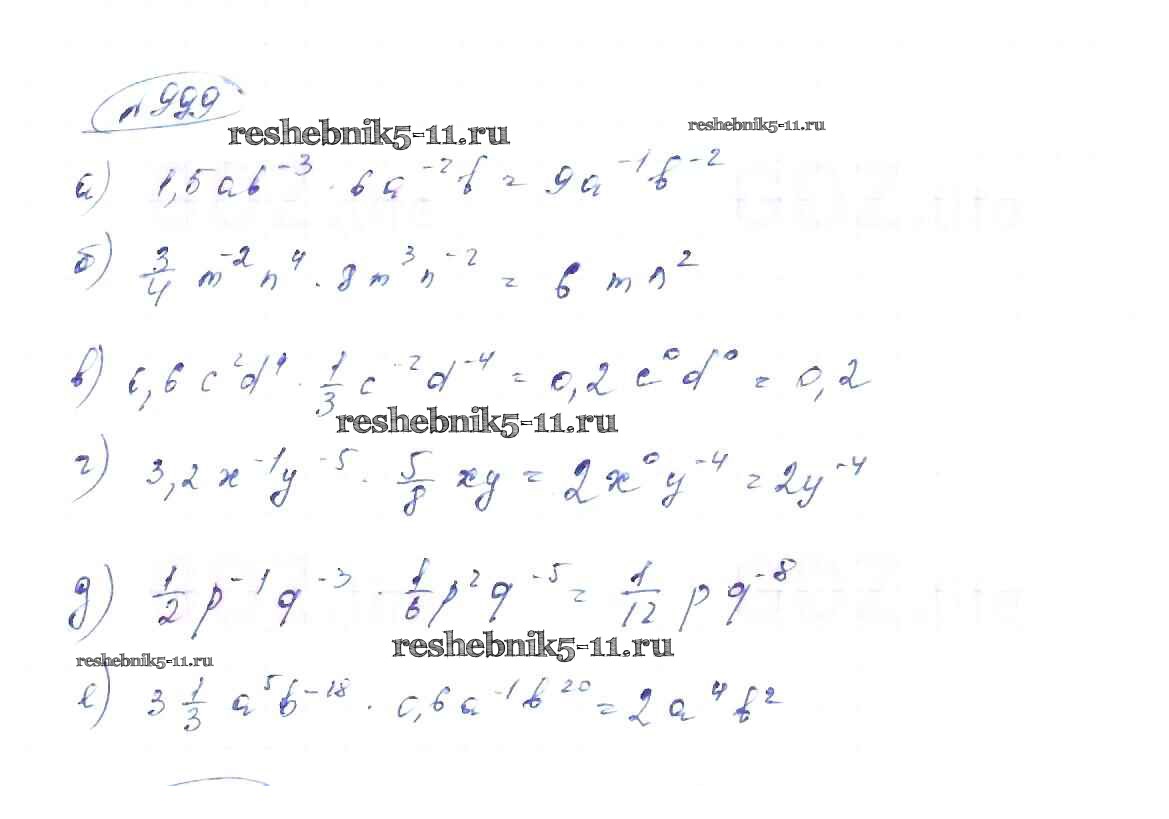 № 999
reshebnik5-11.ru reshebnik5-11.ru
а) 1,5ab⁻³ · 6a⁻²b = 9a⁻¹b⁻²
б) 3/4 m⁻²n⁴ · 8m³n⁻² = 6mn²
в) 0,6c²d⁴ · 1/3 c⁻²d⁻⁴ = 0,2c⁰d⁰ = 0,2
reshebnik5-11.ru
г) 3,2x⁻¹y⁻⁵ · 5/8 xy = 2x⁰y⁻⁴ = 2y⁻⁴
д) 1/2 p⁻¹q⁻³ · 1/6 p²q⁻⁵ = 1/12 pq⁻⁸
reshebnik5-11.ru
reshebnik5-11.ru
е) 3 1/3 a⁵b⁻¹⁸ · 0,6a⁻¹b²⁰ = 2a⁴b²